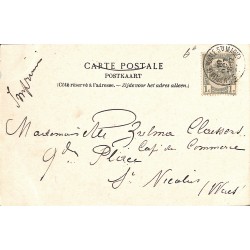 CARTE POSTALE
POSTKAART
(Côté réservé à l'adresse. — Zijde voor het adres alleen.)
Imprimé
Mademoiselle Zulma Claekens
Café du Commerce
Gde Place
St Nicolas
(Waes)